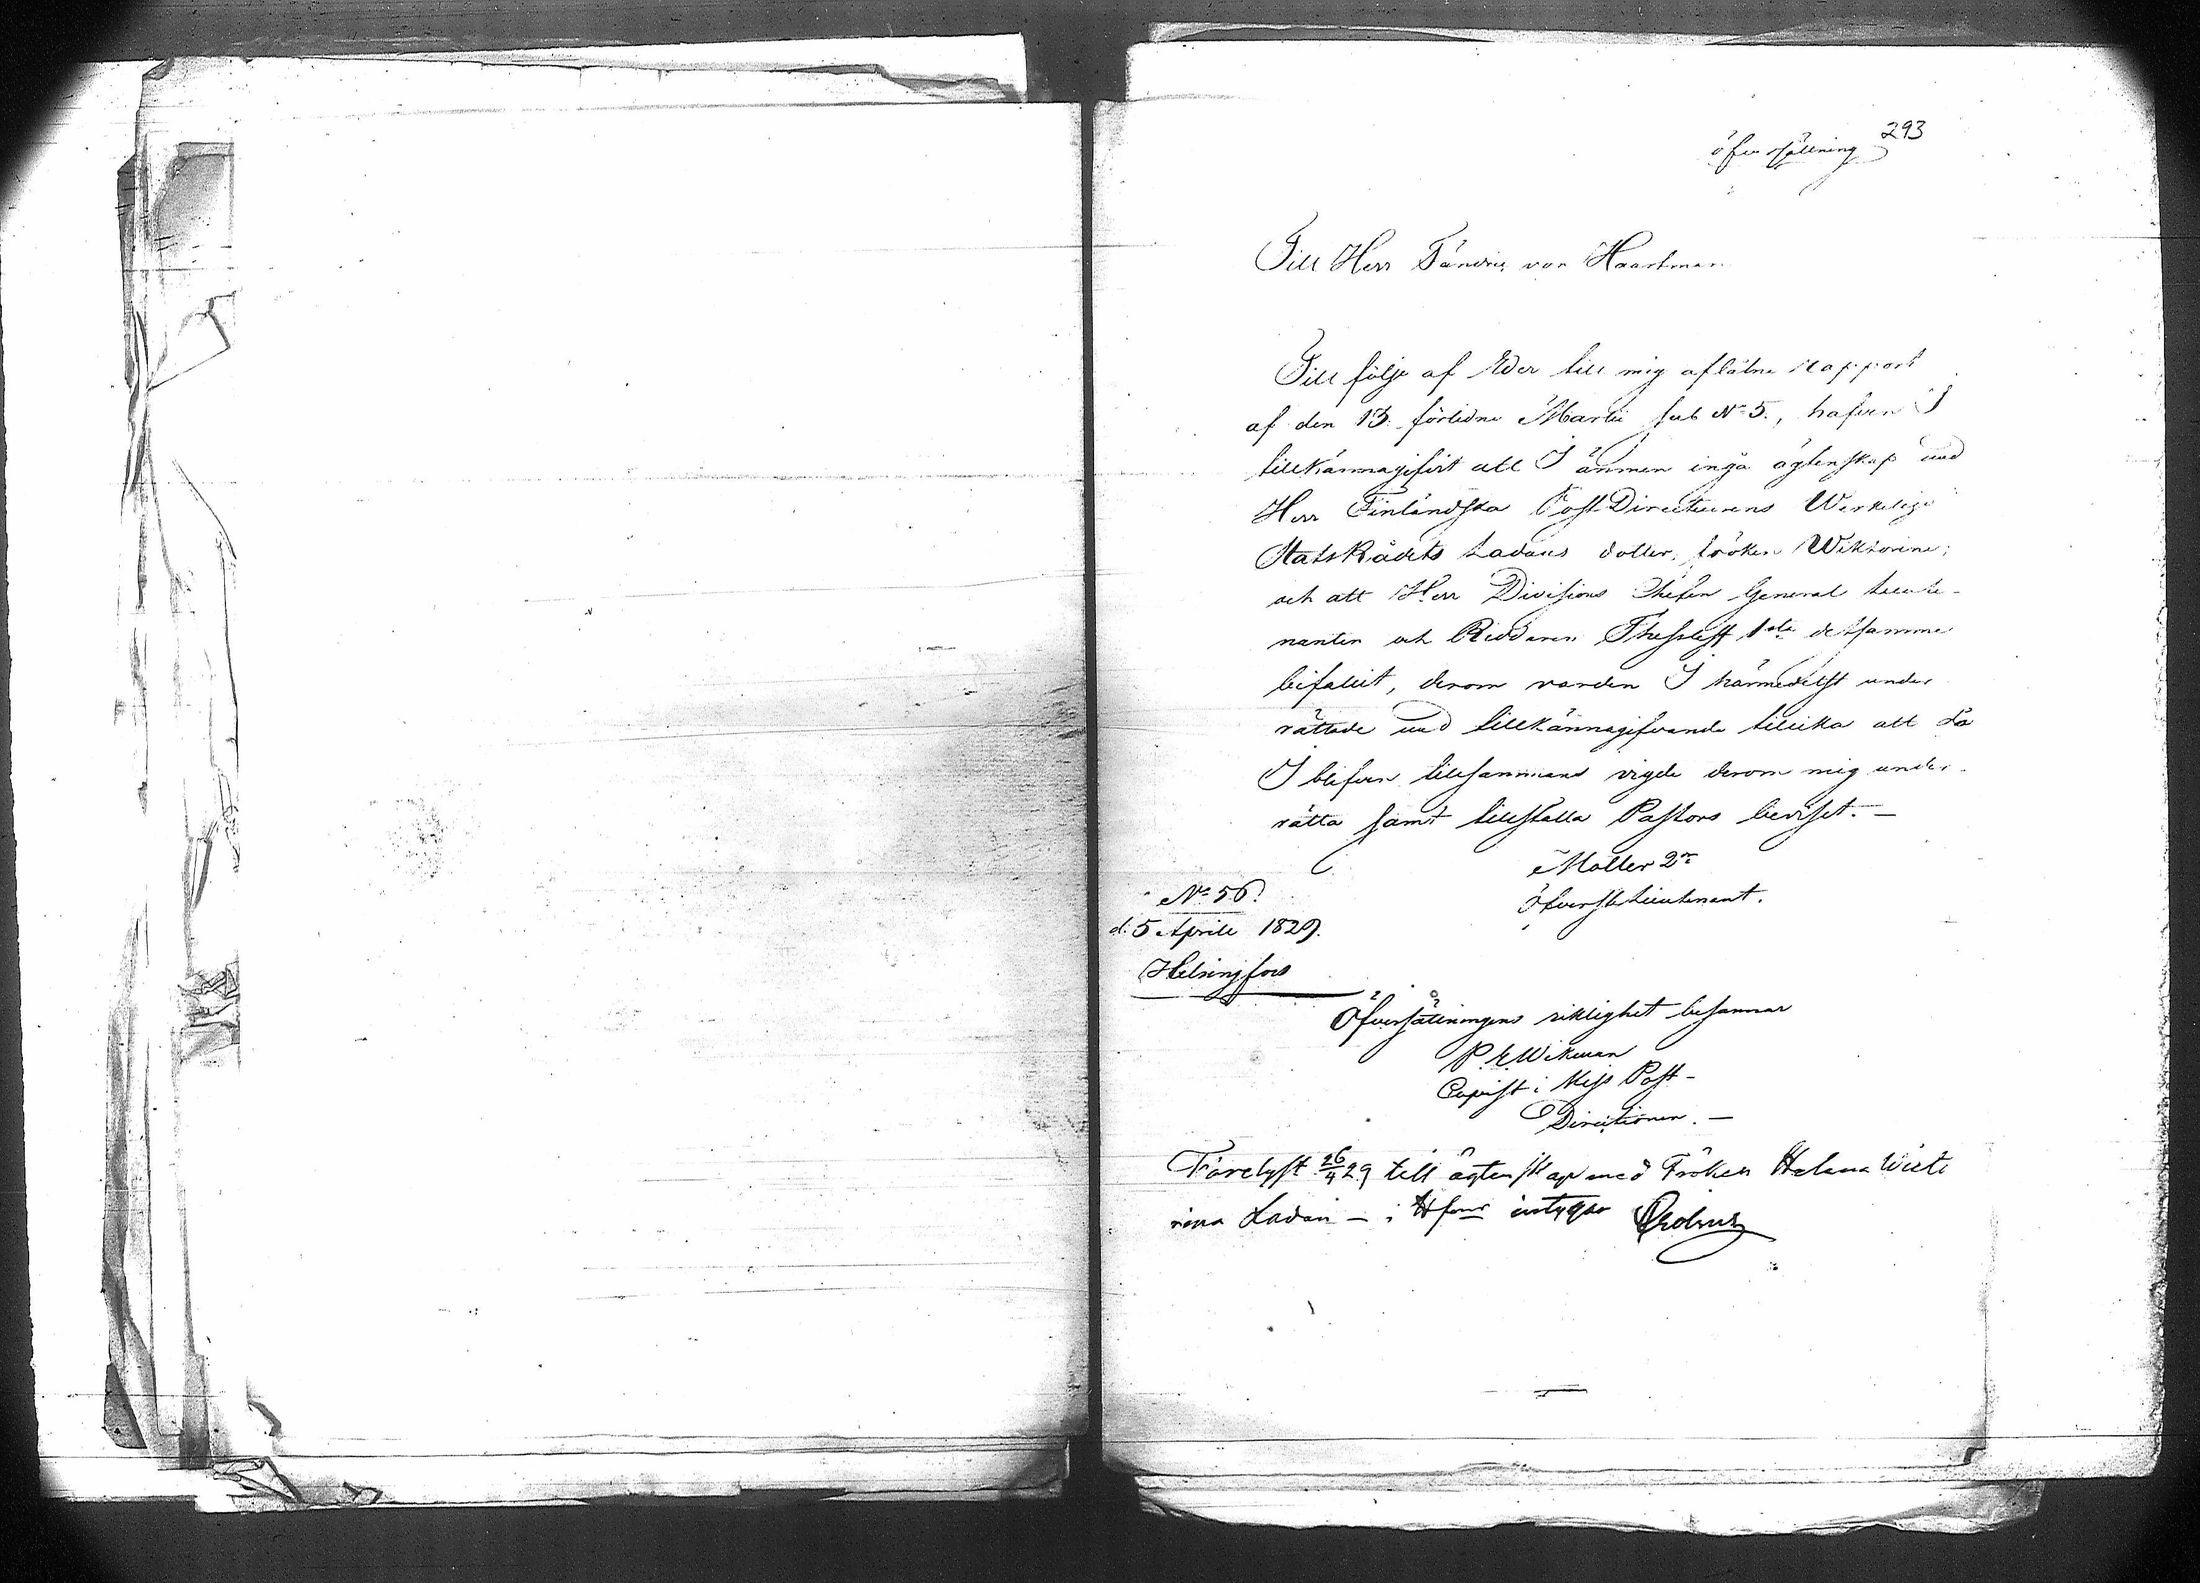 293
öfversättning
Till Herr Fändric von Haartman
Till följe af Eder till mig aflåtne rapport
af den 13. förlidne Martii sub No 5., hafven I
tillkännagifvit att I ämnen ingå ägtenskap med
Herr Finländska Post-Directeurens Werkelige
StatsRådets Ladaus dotter, fröken Wiktorine;
och att Herr Divisions Chefen General Lieute-
nanten och Riddaren Thesleff 1ste detsamme
bifallit, derom varden I härmedelst under
rättade med tillkännagifvande tillika att då
I blifven tillsammans vigde derom mig under-
rätta samt tillställa Pastors beviset. —
Moller 2re
Öfverste Lieutenant.
No 56.
d: 5 Aprill 1829.
Helsingfors
Öfversättningens riktighet besannar
P. E. Wikman
Copist i Post-
Directionen. —
Förelyst 26/4 29 till ägtenskap med Fröken Helena Wicto
rina Ladau — i Hfors intygar